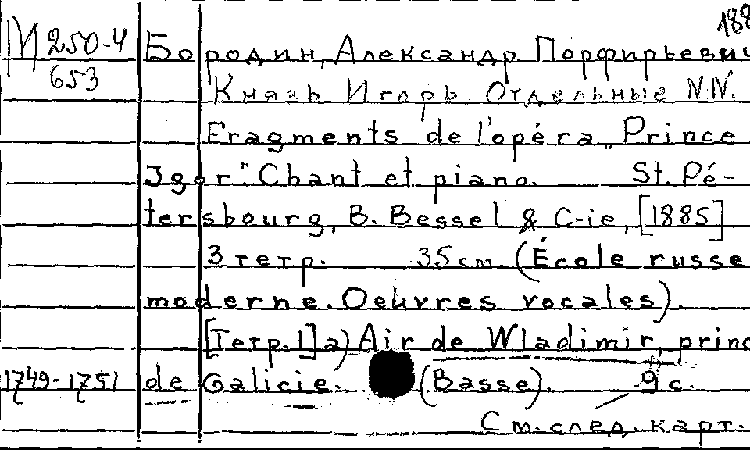 188
М 250-4 Бородин, Александр Порфирьевич
653 Князь Игорь Отдельные N.N.
Fragments de l'opéra „Prince
Jgor". Chant et piano. St. Pé-
tersbourg, B. Bessel & C-ie, [1885]
3 тетр. 35 см (École russe
moderne. Oeuvres vocales).
[Тетр. 1] a) Air de Wladimir, princ
1749-1751 de Galicie. (Basse). 9 с.
См. след. карт.